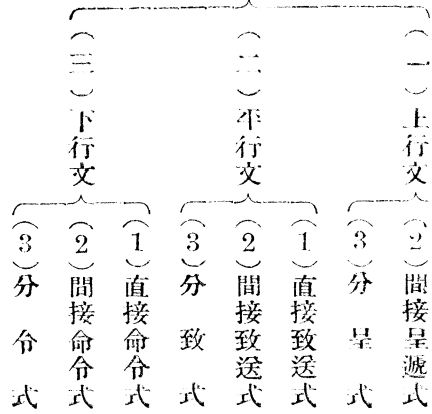 (一)上行文
(2)間接呈遞式
(3)分呈式
(二)平行文
(1)直接致送式
(2)間接致送式
(3)分致式
(三)下行文
(1)直接命令式
(2)間接命令式
(3)分令式